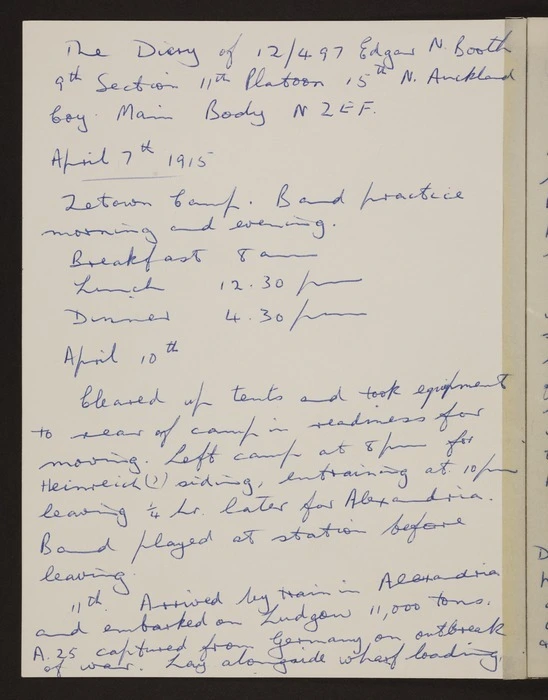 The Diary of 12/497 Edgar N. Booth
9th Section 11th Platoon 15th N. Auckland
Coy. Main Body NZEF.
April 7th 1915
Zetown Camp. Band practice
morning and evening.
Breakfast 8 am
Lunch 12.30 pm
Dinner 4.30 pm
April 10th
Cleared up tents and took equipment
to rear of camp in readiness for
moving. Left camp at 8 pm for
Heinreich (?) siding, entraining at 10 pm
leaving ¼ hr. later for Alexandria.
Band played at station before
leaving.
11th. Arrived by train in Alexandria
and embarked on Ludgow 11,000 tons.
A.25 captured from Germany on outbreak
of war. Lay alongside wharf loading,